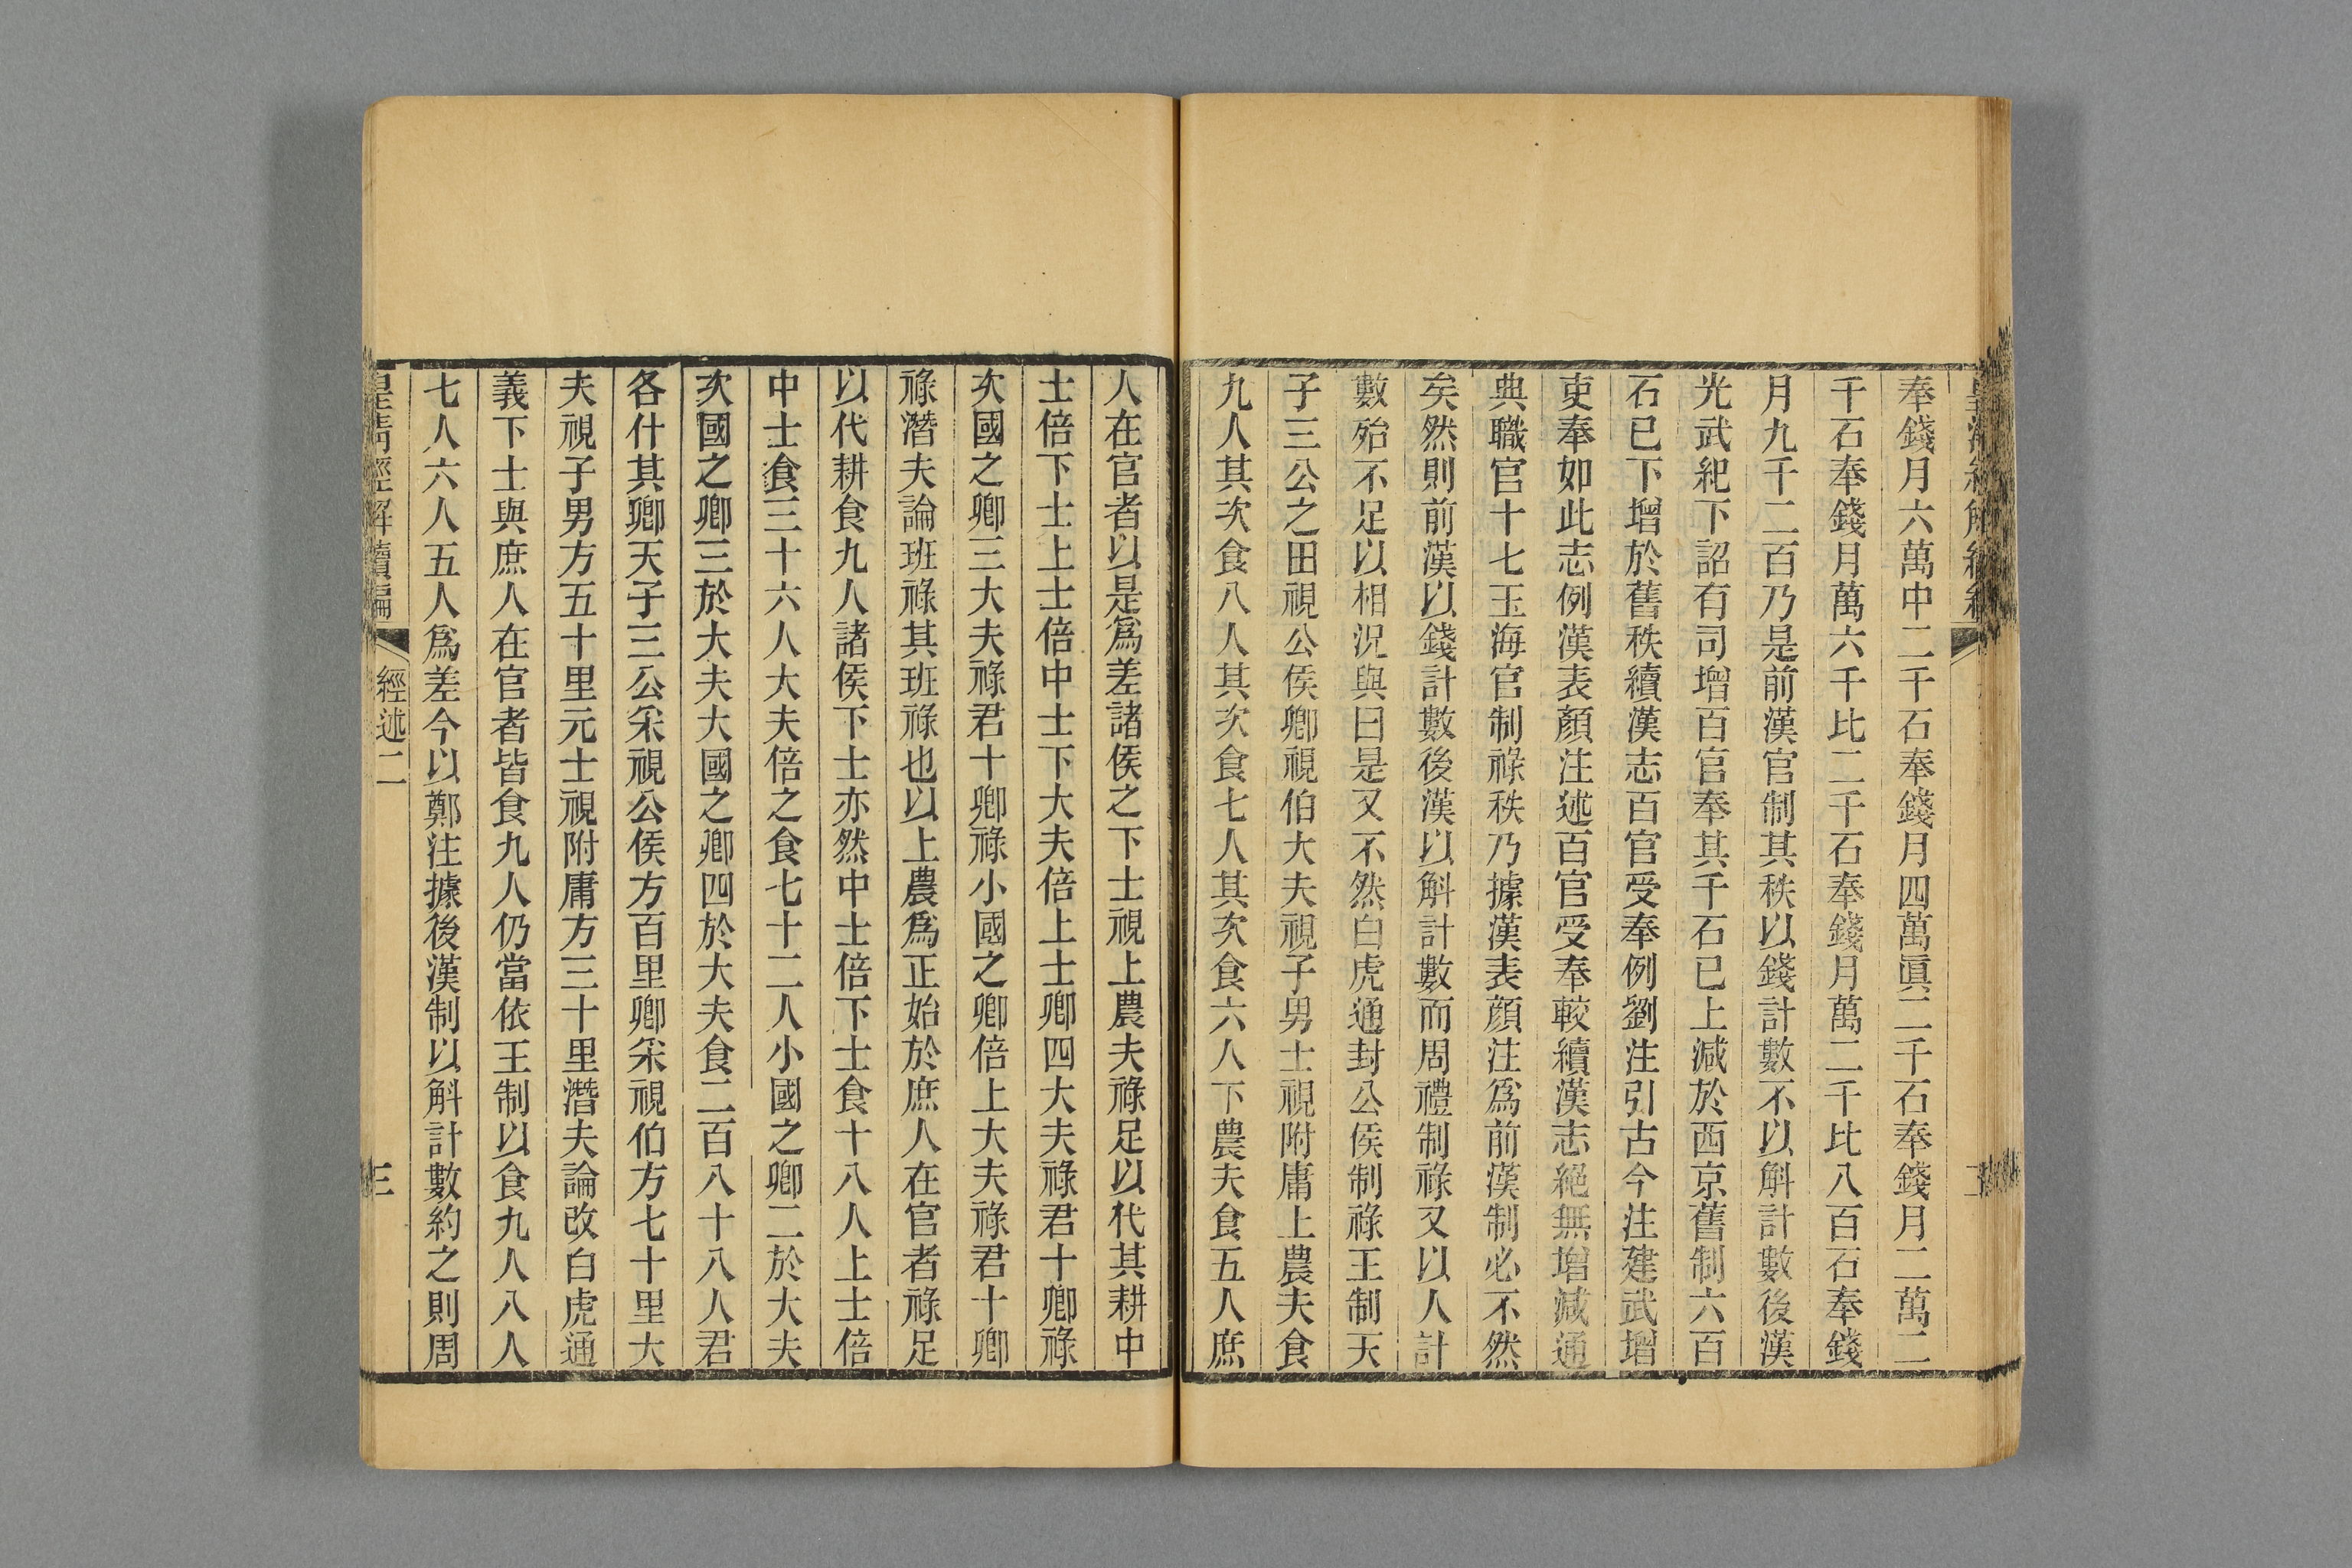 奉錢月六萬中二千石奉錢月四萬眞二千石奉錢月二萬二
千石奉錢月萬六千比二千石奉錢月萬二千比八百石奉錢
月九千二百乃是前漢官制其秩以錢計數不以斛計數後漢
光武紀下詔有司增百官奉其千石已上減於西京舊制六百
石已下增於舊秩續漢志百官受奉例劉注引古今注建武增
吏奉如此志例漢表顏注述百官受奉較續漢志絕無增減通
典職官十七玉海官制祿秩乃據漢表顏注爲前漢制必不然
矣然則前漢以錢計數後漢以斛計數而周禮制祿又以人計
數殆不足以相況與曰是又不然白虎通封公侯制祿王制天
子三公之田視公侯卿視伯大夫視子男士視附庸上農夫食
九人其次食八人其次食七人其次食六人下農夫食五人庶
人在官者以是爲差諸侯之下士視上農夫祿足以代其耕中
士倍下士上士倍中士下大夫倍上士卿四大夫祿君十卿祿
次國之卿三大夫祿君十卿祿小國之卿倍上大夫祿君十卿
祿潛夫論班祿其班祿也以上農爲正始於庶人在官者祿足
以代耕食九人諸侯下士亦然中士倍下士食十八人上士倍
中士食三十六人大夫倍之食七十二人小國之卿二於大夫
次國之卿三於大夫大國之卿四於大夫食二百八十八人君
各什其卿天子三公采視公侯方百里卿采視伯方七十里大
夫視子男方五十里元士視附庸方三十里潛夫論改白虎通
義下士與庶人在官者皆食九人仍當依王制以食九人八人
七人六人五人爲差今以鄭注據後漢制以斛計數約之則周
皇清經解續編
經述二
三